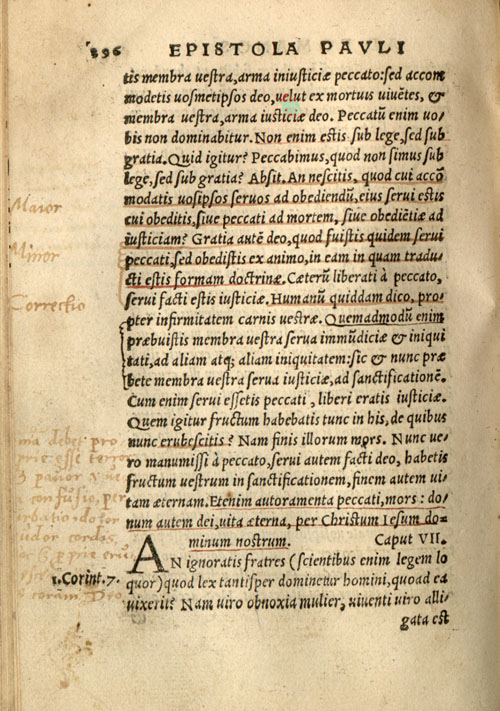 896 EPISTOLA PAVLI
tis membra uestra, arma iniusticiæ peccato: sed accom
modetis uosmetipsos deo, uelut ex mortuis uiuētes, &
membra uestra, arma iusticiæ deo. Peccatū enim uo/
bis non dominabitur. Non enim estis sub lege, sed sub
gratia. Quid igitur? Peccabimus, quod non simus sub
lege, sed sub gratia? Absit. An nescitis, quod cui accō
modatis uosipsos seruos ad obediendū, eius serui estis
cui obeditis, siue peccati ad mortem, siue obediētiæ ad
iusticiam? Gratia autē deo, quod fuistis quidem serui
peccati, sed obedistis ex animo, in eam in quam tradu/
cti estis formam doctrinæ. Cæterū liberati à peccato,
serui facti estis iusticiæ. Humanū quiddam dico, pro/
pter infirmitatem carnis uestræ. Quemadmodū enim
præbuistis membra uestra serua immūdiciæ & iniqui
tati, ad aliam atq; aliam iniquitatem: sic & nunc præ
bete membra uestra serua iusticiæ, ad sanctificationē.
Cum enim serui essetis peccati, liberi eratis iusticiæ.
Quem igitur fructum habebatis tunc in his, de quibus
nunc erubescitis? Nam finis illorum mors. Nunc ue/
ro manumissi à peccato, serui autem facti deo, habetis
fructum uestrum in sanctificationem, finem autem ui/
tam æternam. Etenim autoramenta peccati, mors: do/
num autem dei, uita æterna, per Christum Iesum do/
minum nostrum. Caput VII.
AN ignoratis fratres (scientibus enim legem lo
quor) quod lex tantisper dominetur homini, quoad ea
uixerit? Nam uiro obnoxia mulier, uiuenti uiro alli/
gata est
Maior
Minor
Correctio
ma debet pro
prie esse terror
confusio, per
cordis
coram Deo
1. Corint. 7.